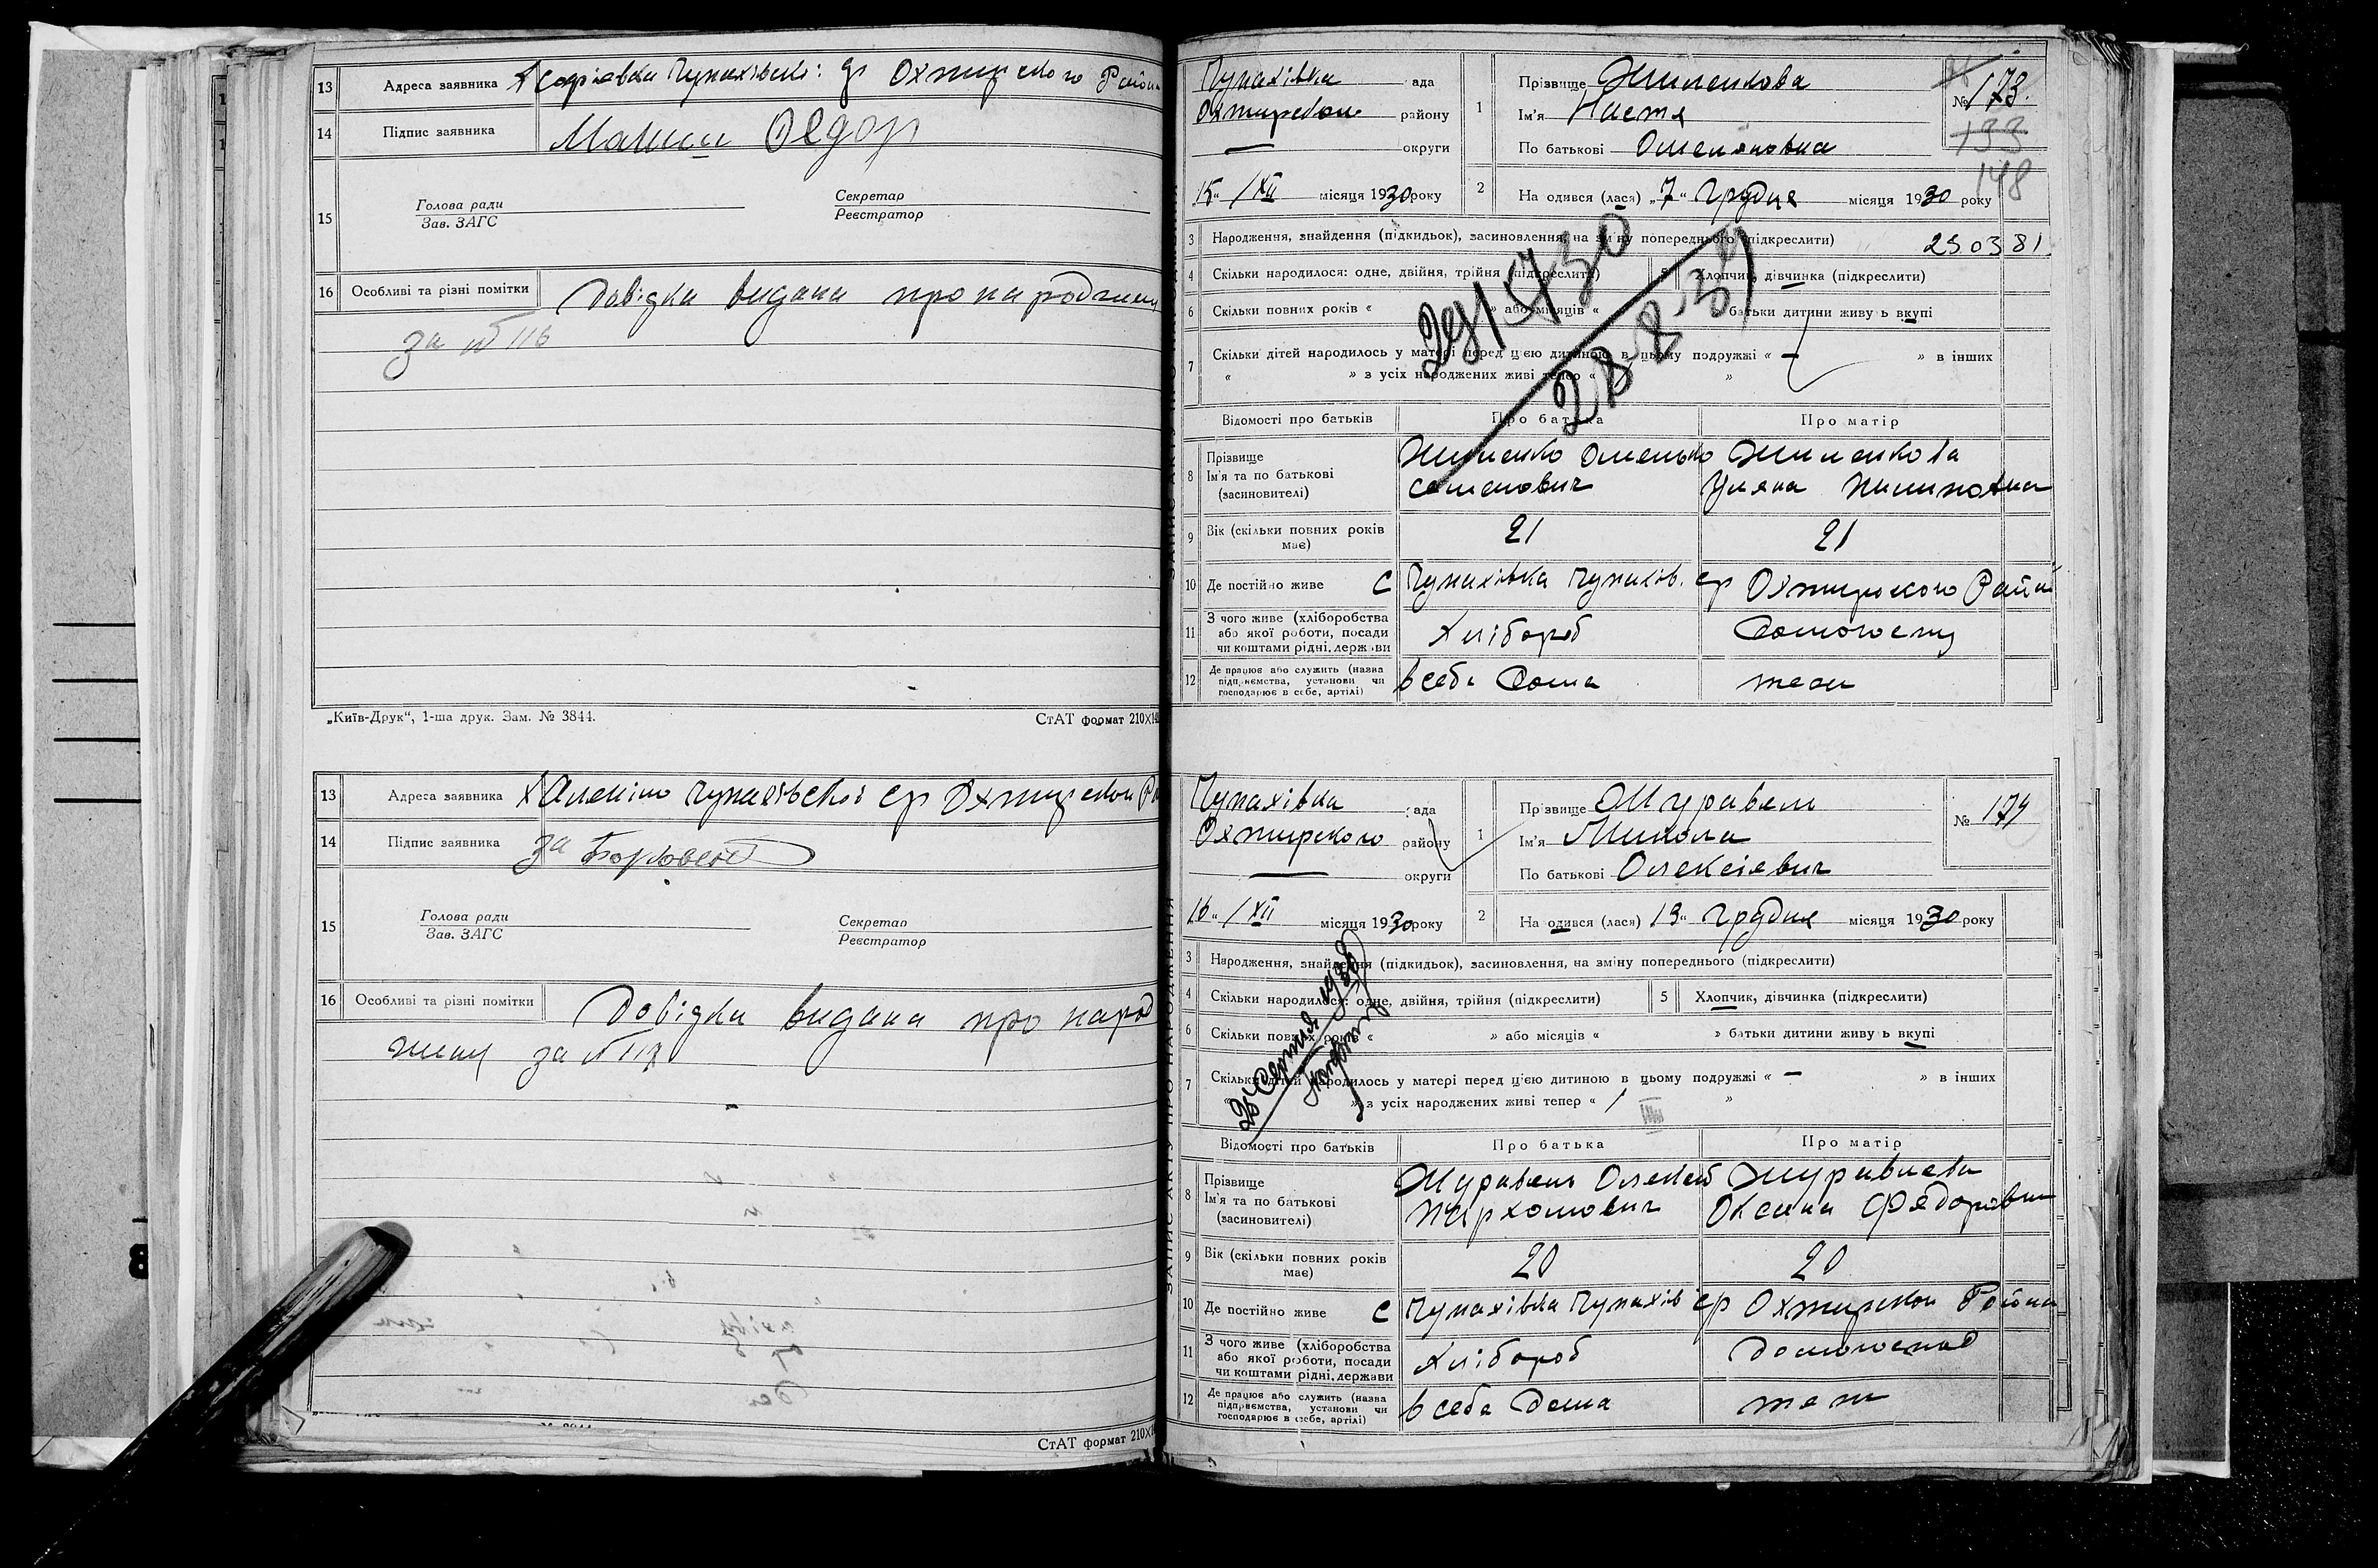 13 Адреса заявника х Софіевка Чупахівської ср Охтирского Району
14 Підпис заявника
Федор
15 Голова ради
Зав. ЗАГС
Секретар
Реєстратор
16 Особливі та різні помітки Довідка видана про народжени
за № 116
„Київ-Друк“, 1-ша друк. Зам. № 3844.
СтАТ формат 210Х
13 Адреса заявника х Чупахівської ср Охтирском
14 Підпис заявника за
15 Голова ради
Зав. ЗАГС
Секретар
Реєстратор
16 Особливі та різні помітки Довідка видана про народ
жени за №
СтАТ формат 210Х
Чупахівка ада
Охтирском району
— округи
15 " / XII місяця 1930 року
1 Прізвище Жиленкова
Ім'я Настя
По батькові Омеляновна
№ 173.
133
148
2 На одився (лася) „7“ Грудня місяця 1930 року
3 Народження, знайдення (підкидьок), засиновлення, на зміну попереднього (підкреслити)
250381.
4 Скільки народилося: одне, двійня, трійня (підкреслити)
5 Хлопчик, дівчинка (підкреслити)
6 Скільки повних років « » або місяців « батьки дитини живу ь вкупі
7 Скільки дітей народилось у матері перед цією дитиною в цьому подружжі « — » в інших
« » з усіх народжених живі тепер « »
28-2-39
Відомості про батьків
Про батька
Про матір
8 Прізвище
Ім'я та по батькові
(засиновителі)
Жиленко Омелько
Семенович
Жиленкова
Уляна Пилиповна
9 Вік (скільки повних років має)
21
21
10 Де постійно живе С Чупахівка Чупахів. ср Охтирского Району
11 З чого живе (хліборобства або якої роботи, посади чи коштами рідні, держави
Хлібороб
12 Де працює або служить (назва підприємства, установи чи господарює в себе, артілі)
в себе дома
теж
ЗАПИС АКТУ ПРО НАРОДЖЕННЯ
Чупахівка ада
Охтирского району
— округи
16 " / XII місяця 1930 року
1 Прізвище Журавель
Ім'я Микола
По батькові Олексієвич
№ 174
2 На одився (лася) 13 " Грудня місяця 1930 року
3 Народження, знайдення (підкидьок), засиновлення, на зміну попереднього (підкреслити)
4 Скільки народилося: одне, двійня, трійня (підкреслити)
5 Хлопчик, дівчинка (підкреслити)
6 Скільки повних років « » або місяців « » батьки дитини живу ь вкупі
7 Скільки дітей народилось у матері перед цією дитиною в цьому подружжі « — » в інших
» з усіх народжених живі тепер « 1 »
Відомості про батьків
Про батька
Про матір
8 Прізвище
Ім'я та по батькові
(засиновителі)
Журавель Олексій
Пархомович
Журавлева
Оксана Федорівна
9 Вік (скільки повних років має)
20
20
10 Де постійно живе С Чупахівка Чупахів ср Охтирском Району
11 З чого живе (хліборобства або якої роботи, посади чи коштами рідні, держави
Хлібороб
12 Де працює або служить (назва підприємства, установи чи господарює в себе, артілі)
в себе дома
теж